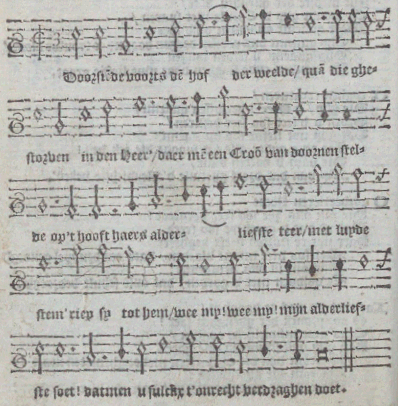 Doorsiēde voorts dē hof der weelde/ quā die ghe-
storven in den Heer'/daer mē een Croō van doornen stel-
de op't hooft haers alder- liefste teer/met luyde
stem' riep sy tot hem/wee my! wee my! mijn alderlief-
ste soet! datmen u sulckx t'onrecht verdraghen doet.